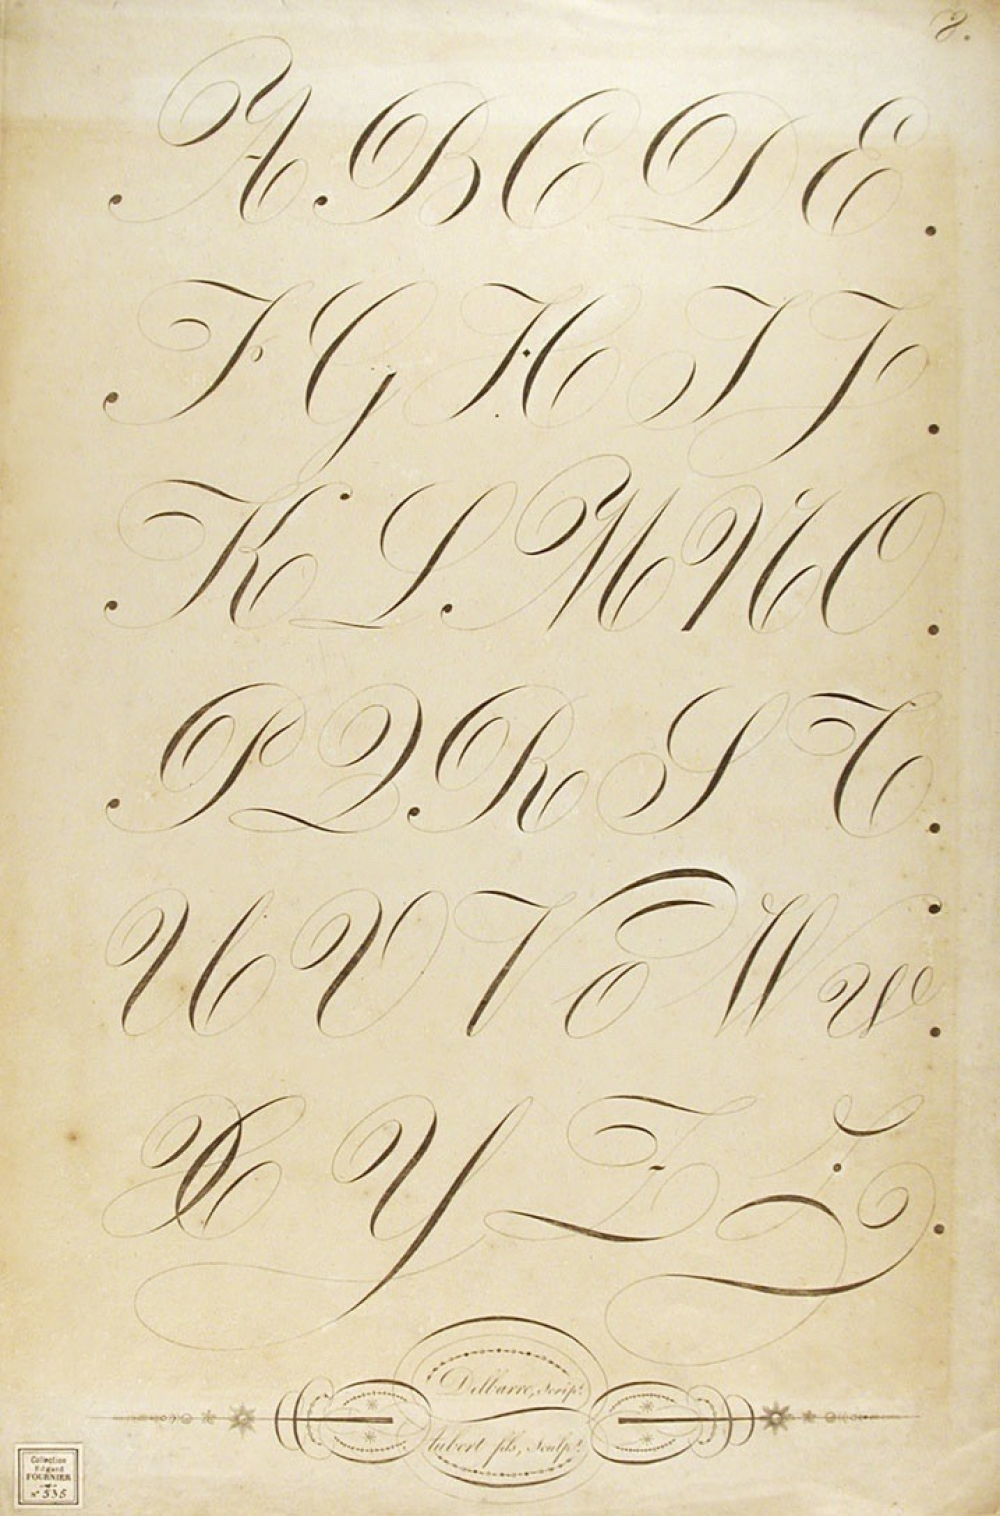 8.
A B C D E.
F G H I J.
K L M N O.
P Q R S T.
U V V W W.
X Y Z Z.
Delbarre, Scrip.t
Aubert fils, Sculp.t
Collection
Edgard
FOURNIER
N° 535